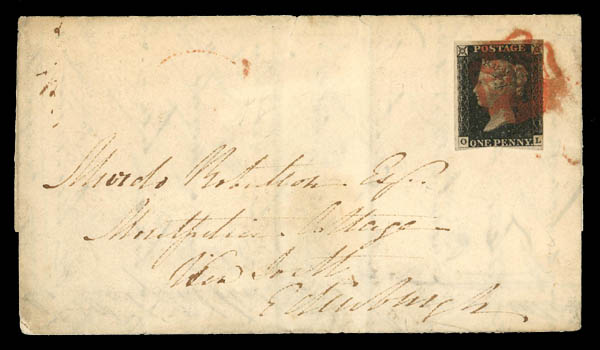 POSTAGE
O ONE PENNY L
Murdo Robertson Esqr.
Montpelier Cottage
Edinburgh